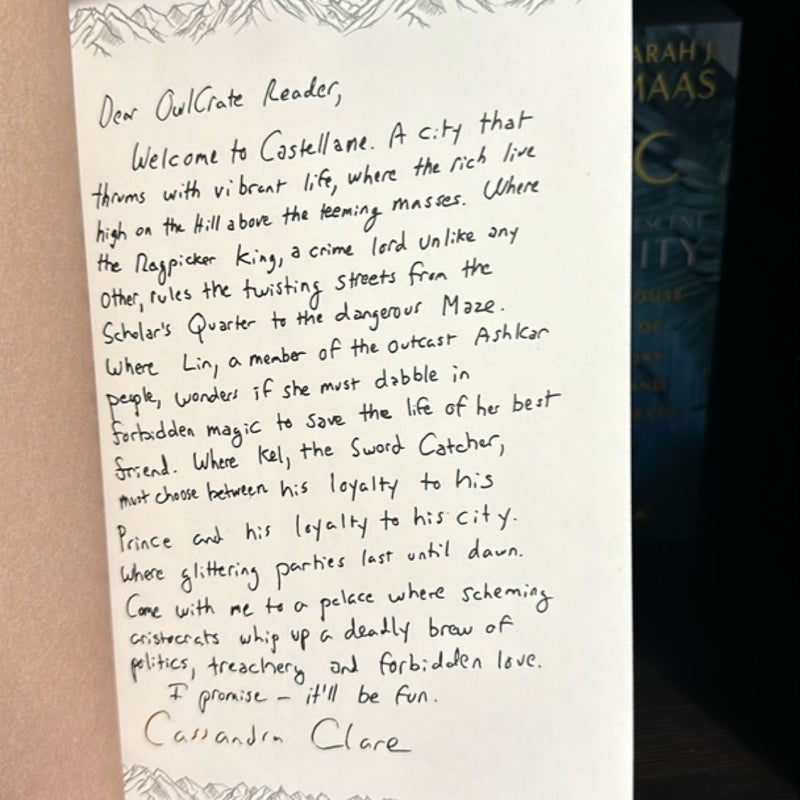 Dear OwlCrate Reader,
Welcome to Castellane. A city that
thrums with vibrant life, where the rich live
high on the Hill above the teeming masses. Where
the Ragpicker King, a crime lord unlike any
other, rules the twisting streets from the
Scholar's Quarter to the dangerous Maze.
Where Lin, a member of the outcast Ashkar
people, wonders if she must dabble in
forbidden magic to save the life of her best
friend. Where Kel, the Sword Catcher,
must choose between his loyalty to his
Prince and his loyalty to his city.
Where glittering parties last until dawn.
Come with me to a palace where scheming
aristocrats whip up a deadly brew of
politics, treachery and forbidden love.
I promise – it'll be fun.
Cassandra Clare
ARAH J.
MAAS
C
ESCENT
ITY
OUSE
OF
SKY
AND